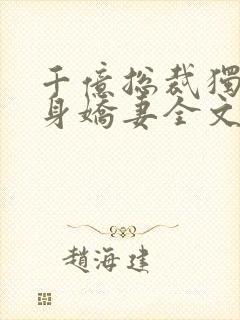 千億總裁獨
身嬌妻全文
趙海建